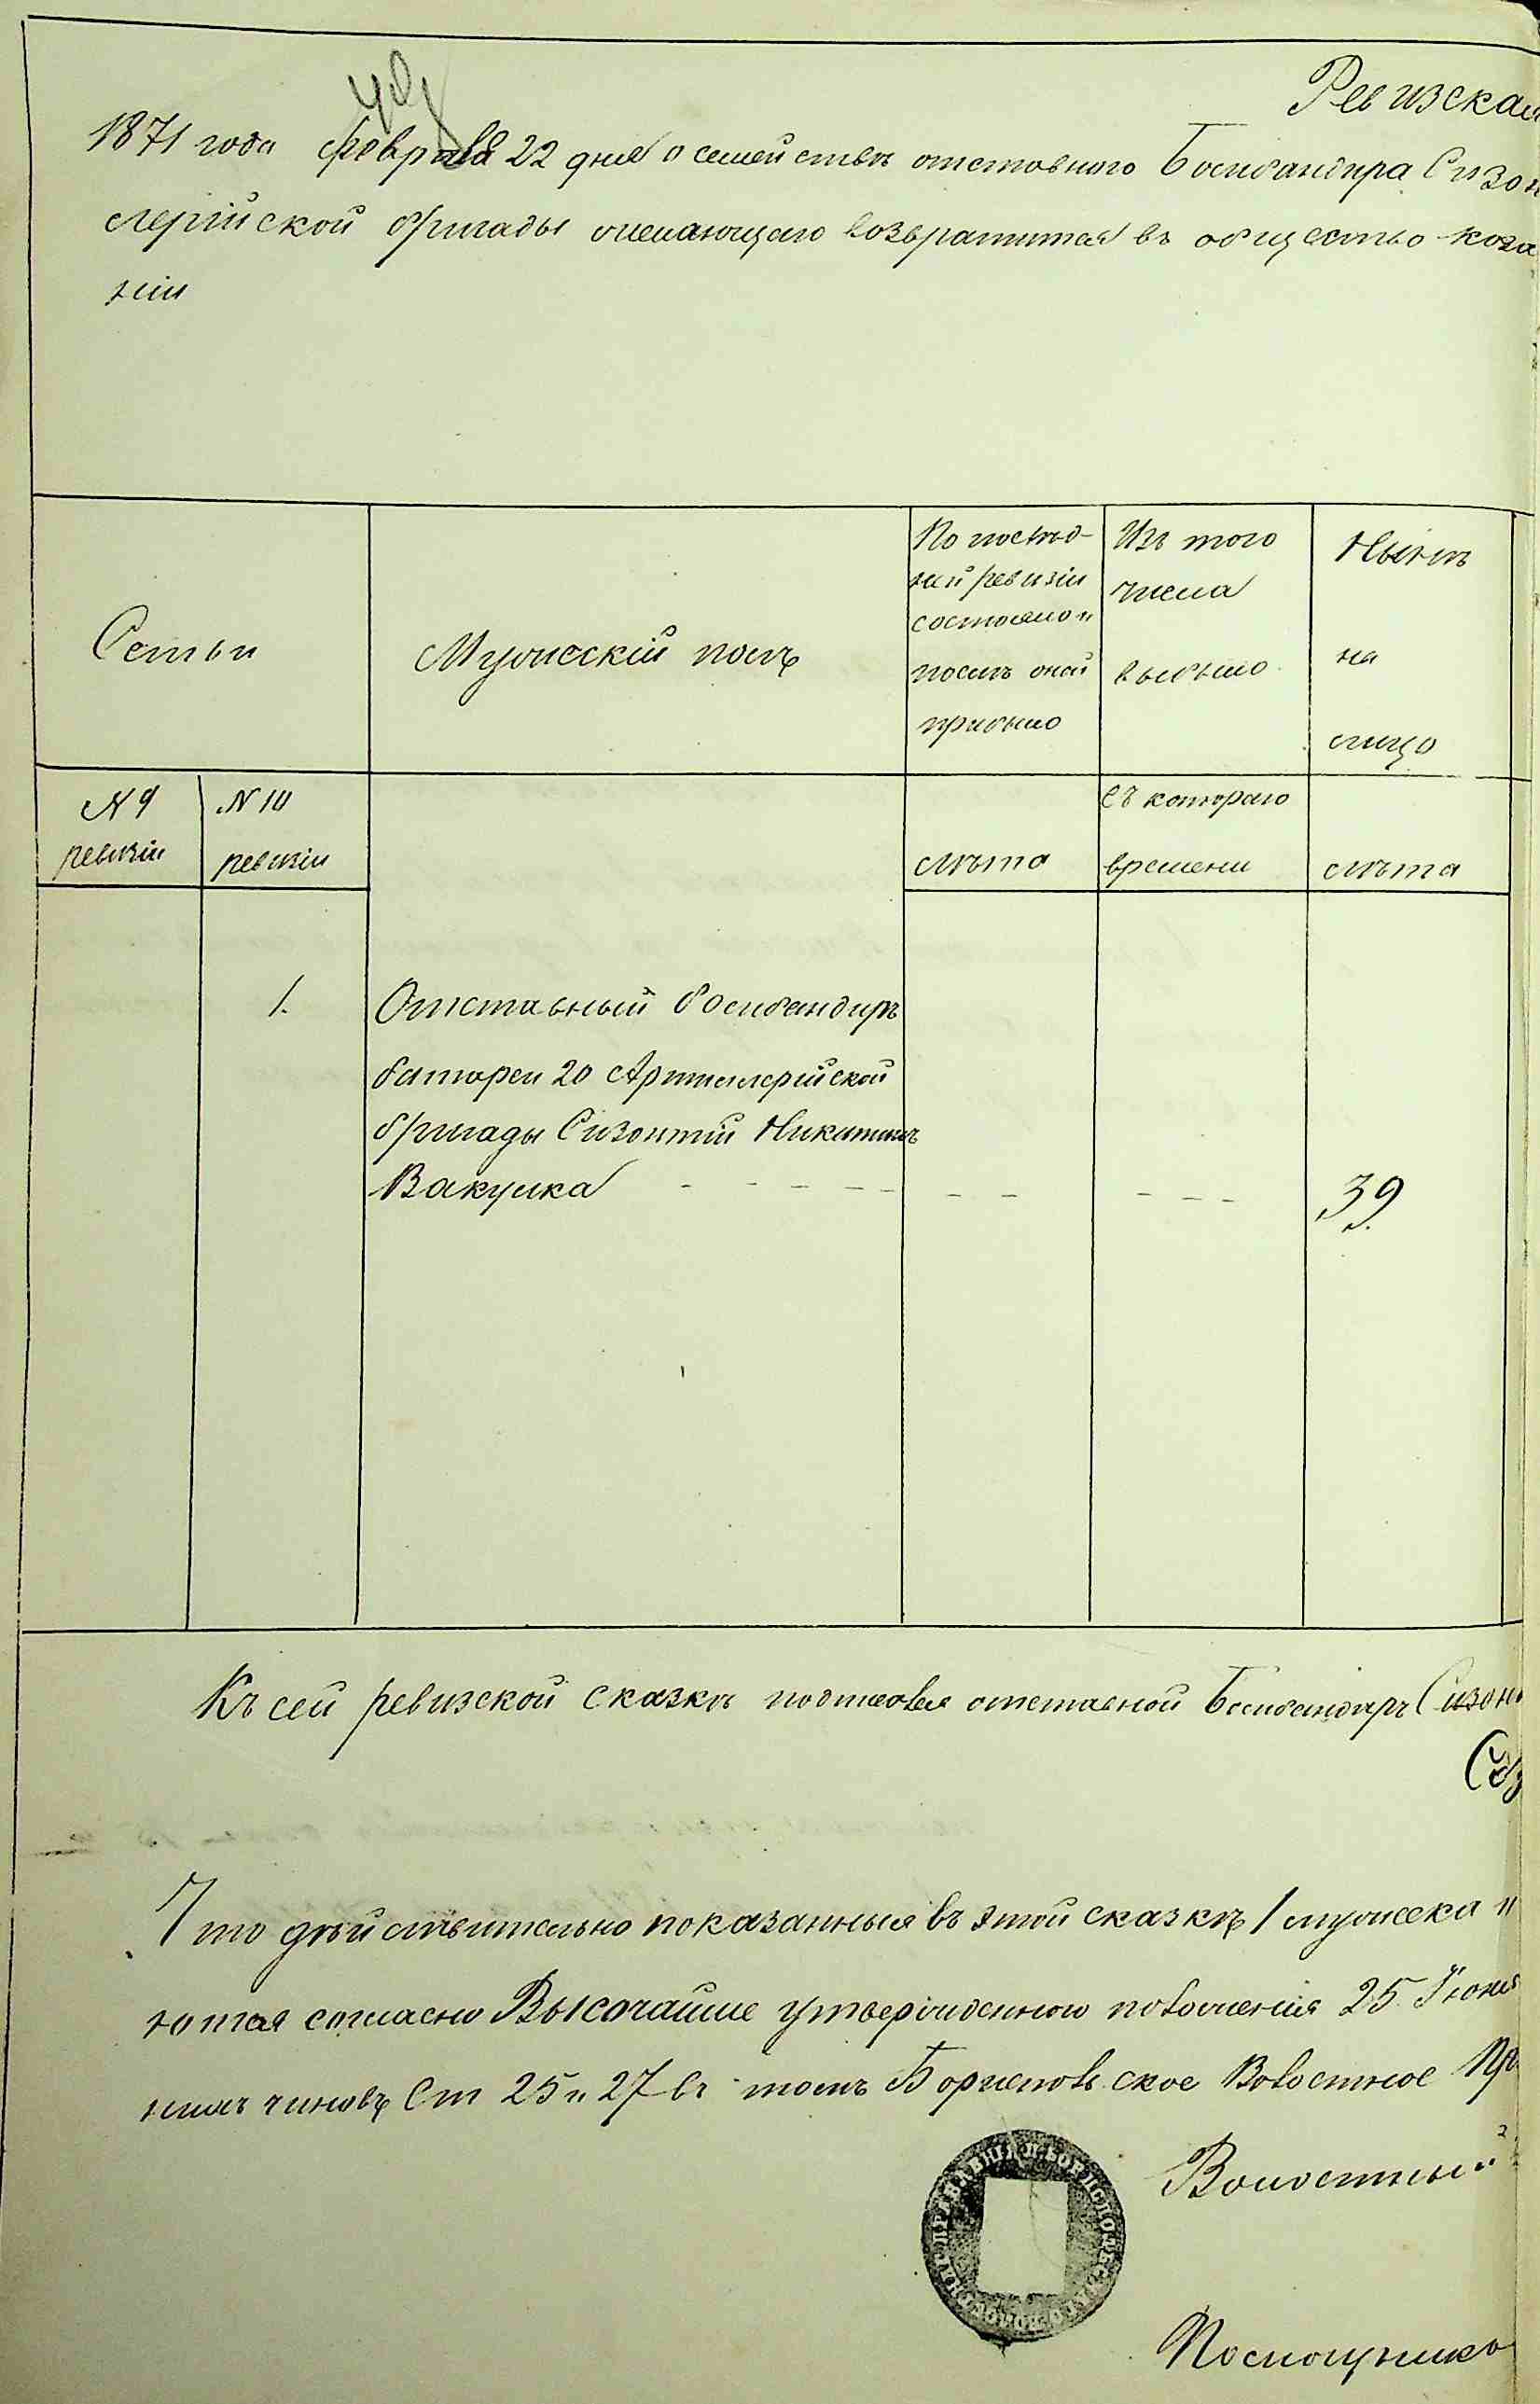 Ревизская
1871 года февраля 22 дня о семействѣ отставного Бомбандира Сизон
лерійской бригады желающаго возвратится въ общество коза
ніи
Семьи
Мужескій полъ
По послѣд-
ней ревизіи
состояло и
послѣ оной
прибыло
Изъ того
числа
выбыло
Нынѣ
на
лицо
N 9
ревизіи
N 10
ревизіи
лѣта
Съ котораго
времени
лѣта
1.
Отставный бомбандиръ
батореи 20 Артилерійской
бригады Сизонтій Никитинъ
Вакулка
39.
Къ сей ревизской сказкѣ отставной Бомбандиръ Сизон
Что дѣйствительно показанныя въ этой сказкѣ 1 мужеска и
ются согласно Высочайше утвержденного положенія 25 Іюня
нихъ чиновъ Ст 25 и 27 въ томъ Борисповское Волостное Пр
Волостный
Помощника